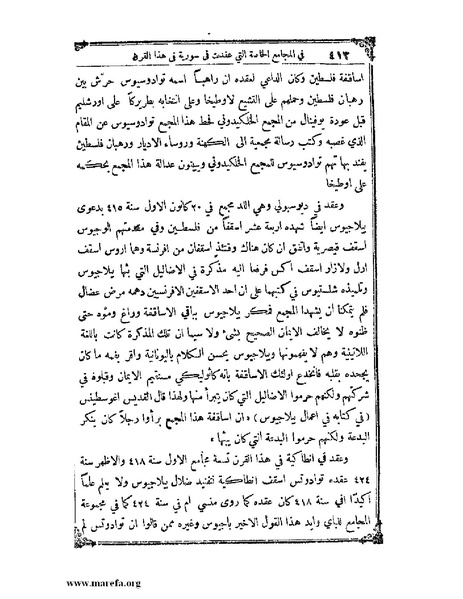 في المجامع الخاصة التي عقدت في سورية في هذا القرن ٤١٣
اساقفة فلسطين وكان الداعي لعقده ان راهباً اسمه توادوسيوس حرّش بين
رهبان فلسطين وحملهم على التشيع لاوطيخا وعلى انتخابه بطريركاً على اورشليم
قبل عودة يوفينال من المجمع الخلكيدوني فحط هذا المجمع توادوسيوس عن المقام
الذي غصبه وكتب رسالة مجمعية الى الكهنة وروساء الاديار ورهبان فلسطين
يفند بها تهم توادوسيوس للمجمع الخلكيدوني ويبينون عدالة هذا المجمع بحكمه
على اوطيخا
وعقد في ديوسبولي وهي اللد مجمع في ٢٠ كانون الاول سنة ٤١٥ بدعوى
بيلاجيوس ايضاً شهده اربعة عشر اسقفاً من فلسطين وفي مقدمتهم اولوجيوس
اسقف قيصرية واتفق ان كان هناك وقتئذ اسقفان من افرنسة وهما اروس اسقف
اول ولازار اسقف اكس فرفعا اليه مذكرة في الاضاليل التي بثها بيلاجيوس
وتلميذه شلستيوس في كتبهما على ان احد الاسقفين الافرنسيين دهمه مرض عضال
فلم يتمكنا ان يشهدا المجمع فمكر بيلاجيوس بباقي الاساقفة وراوغ وموّه حتى
ظنوه لا يخالف الايمان الصحيح بشيء ولا سيما ان تلك المذكرة كانت باللغة
اللاتينية وهم لا يفهمونها وبيلاجيوس يحسن الكلام باليونانية واقر بفمه ما كان
يجحده بقلبه فانخدع اولئك الاساقفة بانه كاثوليكي مستقيم الايمان وقبلوه في
شركتهم ولكنهم حرموا الاضاليل التي كان يتبرأ منها ولهذا قال القديس اغوسطينس
(في كتابه في اعمال بيلاجيوس) « ان اساقفة هذا المجمع برأوا رجلاً كان ينكر
البدعة ولكنهم حرموا البدعة التي كان يبثها »
وعقد في انطاكية في هذا القرن تسعة مجامع الاول سنة ٤١٨ والاظهر سنة
٤٢٤ عقده توادوتس اسقف انطاكية لتفنيد ضلال بيلاجيوس ولا يعلم علماً
اكيداً افي سنة ٤١٨ كان عقده كما روى منسي ام في سنة ٤٢٤ كما في مجموعة
المجامع للباي وايد هذا القول الاخير باجيوس وغيره ممن قالوا ان توادوتس لم
www.marefa.org